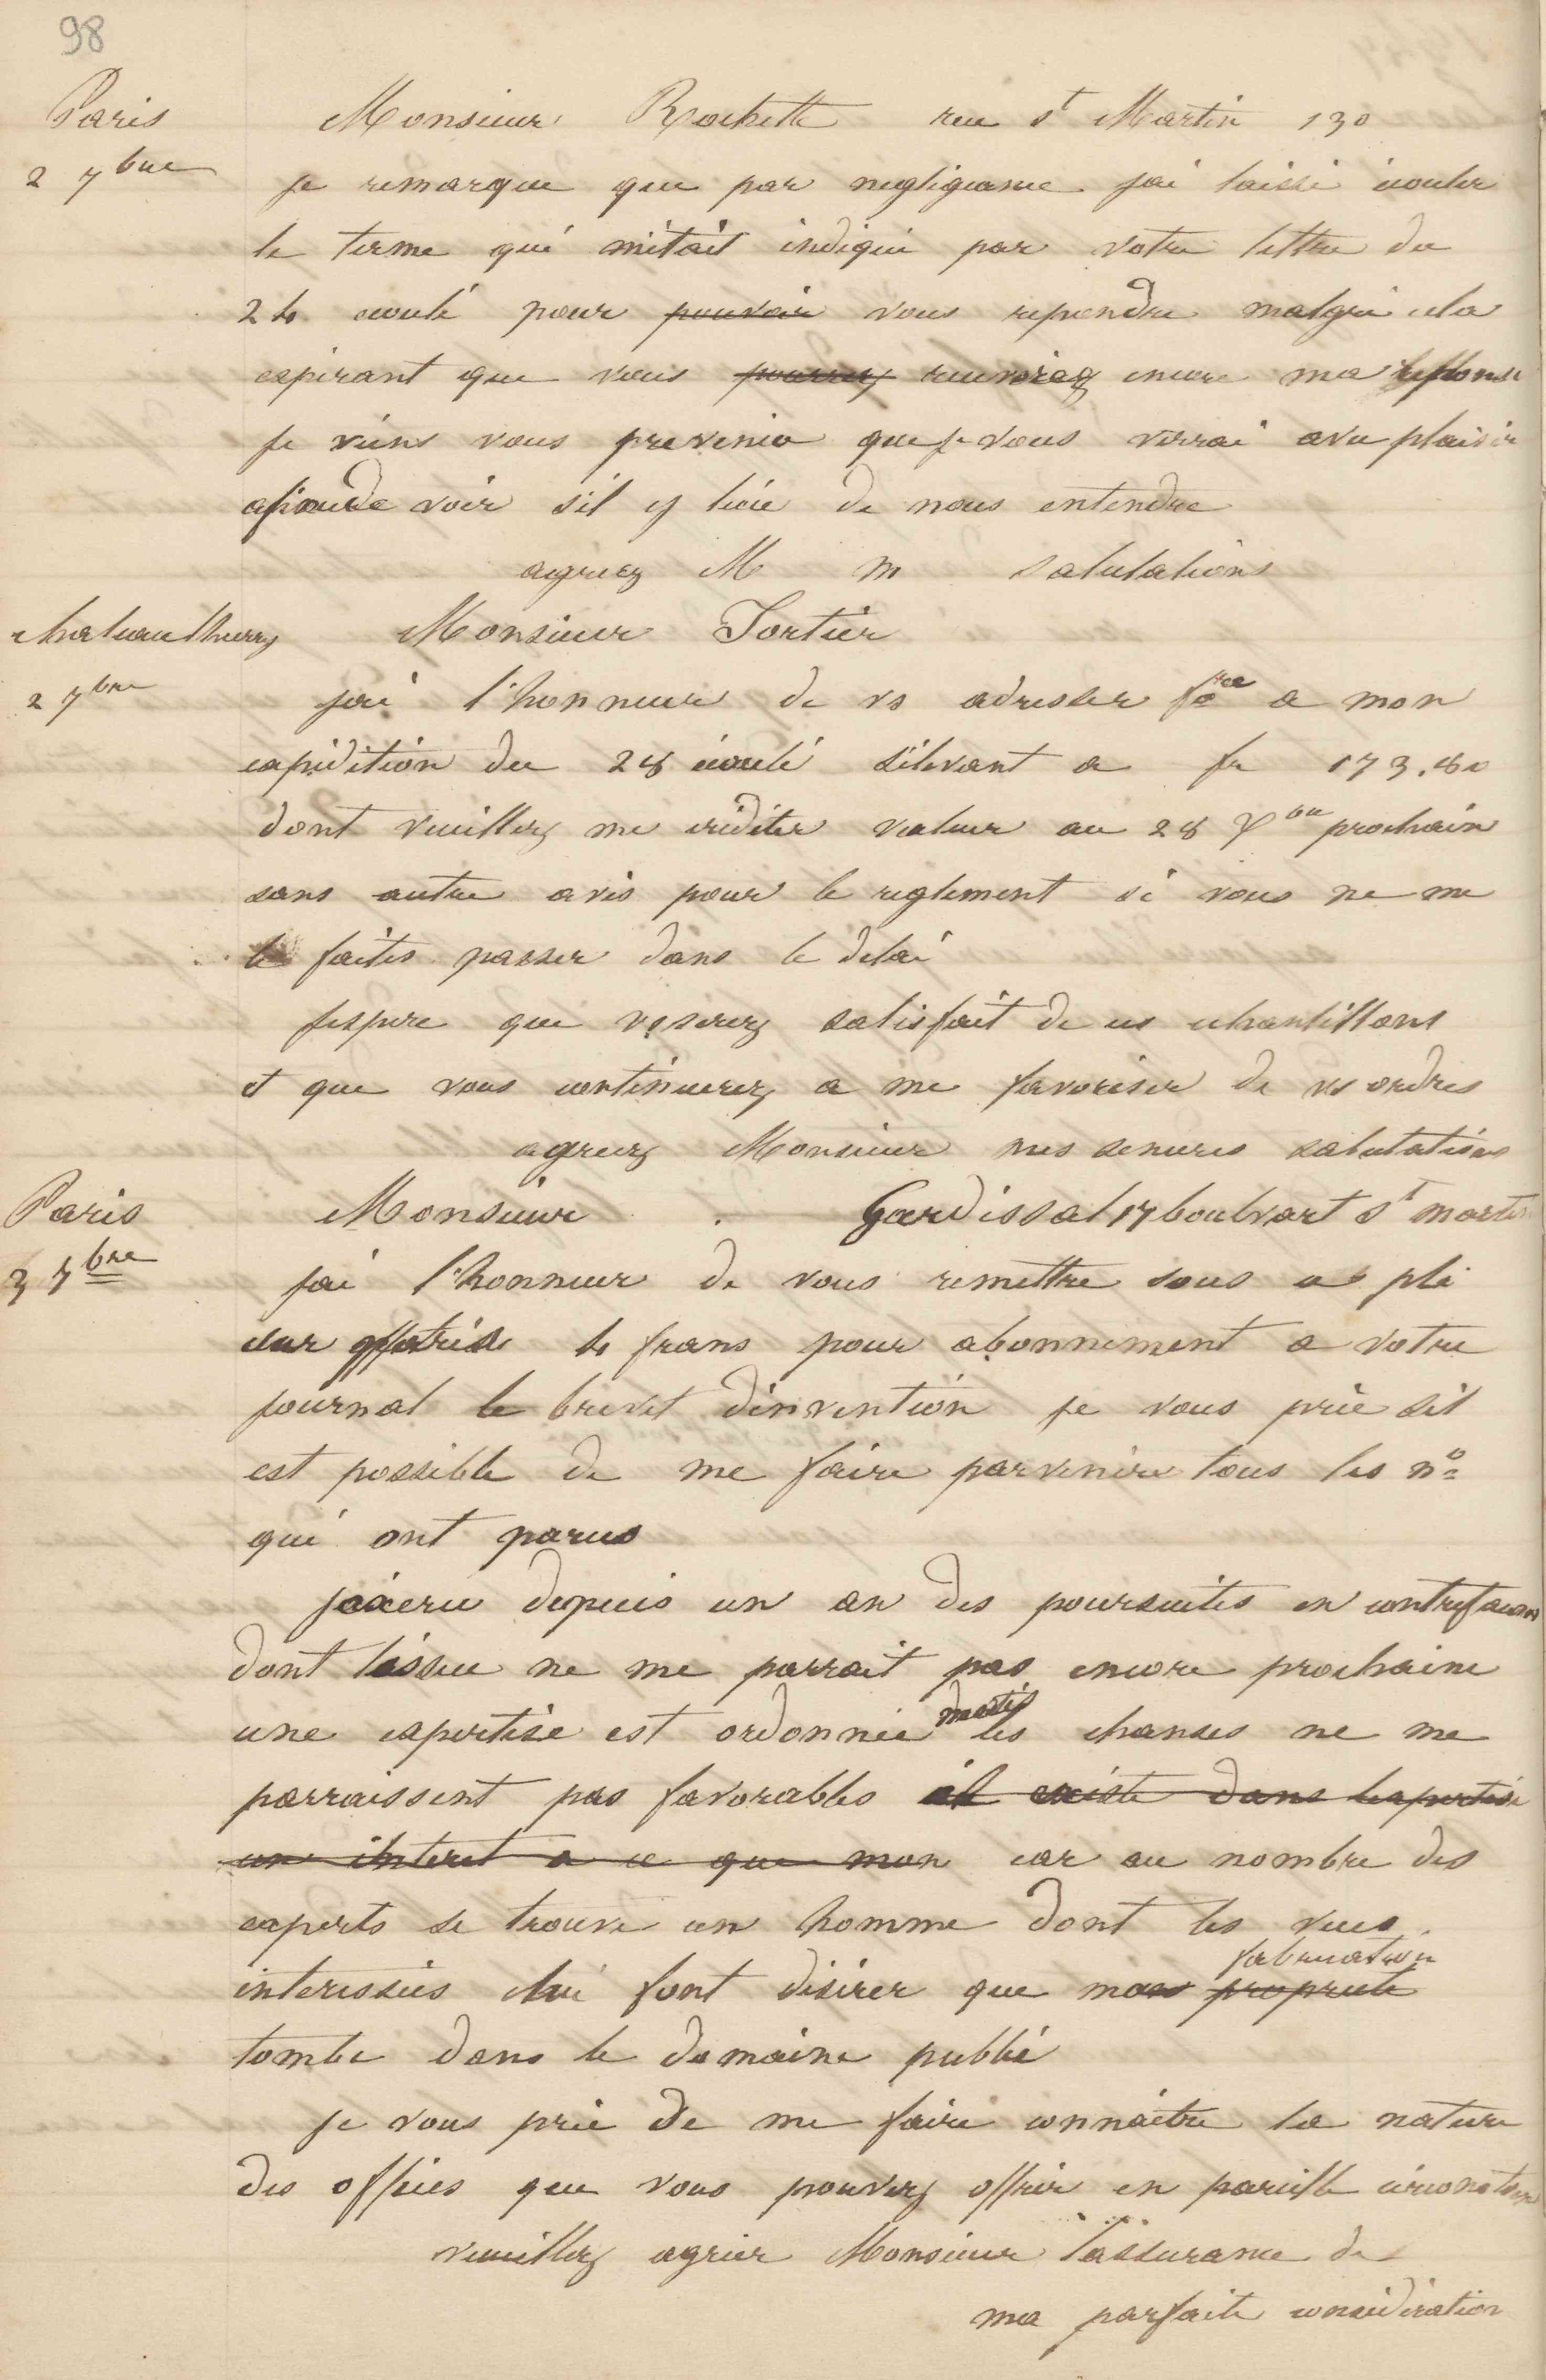 98
Paris
2 7bre
Monsieur Rochette rue St Martin 130
je remarque que par negligeance jai laissé écouler
le terme qui m'était indiqué par votre lettre du
24 écoulé pour pouvoir vous repondre malgré cela
esperant que vous pourrez recevrez encore ma reponse
je viens vous prevenir que je vous verrai avec plaisir
afin de voir s'il y lieu de nous entendre
agreez M m salutations
chateauthierry
2 7bre
Monsieur Tortier
jai l'honneur de vs adresser fre a mon
expédition du 28 écoulé s'élevant a fr 173.80
dont veuillez me créditer valeur au 28 Xbre prochain
sans autre avis pour le reglement si vous ne me
le faites passer dans le delai
jespere que vs serez satisfait de ces echantillons
et que vous continuerez a me favoriser de vs ordres
agreez Monsieur mes sinceres salutations
Paris
3 7bre
Monsieur Gardissal 17 boulevart St martin
jai l'honneur de vous remettre sous ce pli
4 frans pour abonnement a votre
journal le brevet d'invention je vous prie sil
est possible de me faire parvenir tous les no
qui ont parus
jai eu depuis un an des poursuites en contrefacon
dont lissue ne me parrait pas encore prochaine
une expertise est ordonnée mais les chanses ne me
parraissent pas favorables il existe dans lexpertise
un interet a ce que mon car au nombre des
experts se trouve un homme dont les vues
interessées lui font désirer que mon proprieté
fabrication
tombe dans le domaine public
je vous prie de me faire connaitre la nature
des offices que vous pouvez offrir en pareille circonstance
veuillez agréer Monsieur l'assurance de
ma parfaite considération